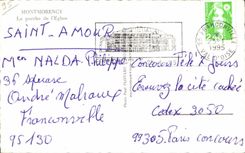 MONTMORENCY
Le porche de l'Eglise
SAINT-AMOUR
Men NALDA Philippe
36 square
André Malraux
Franconville
95130
1995
Concours Télé 7 Jours
Trouvez la cité cachée
Cedex 3050
99305 Paris concours